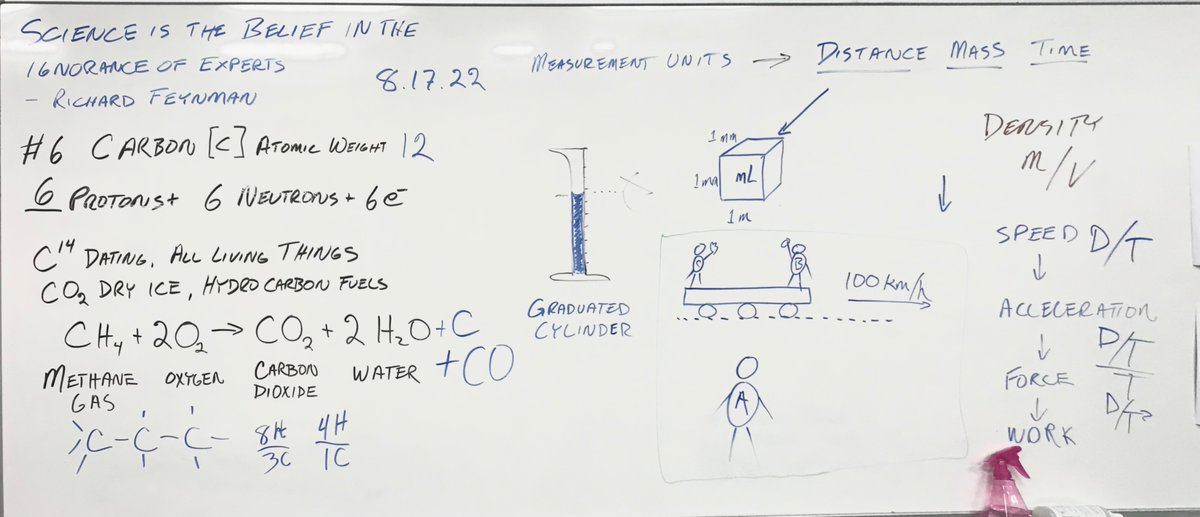 SCIENCE IS THE BELIEF IN THE
IGNORANCE OF EXPERTS
- RICHARD FEYNMAN
8.17.22
#6 CARBON [C] ATOMIC WEIGHT 12
6 PROTONS+ 6 NEUTRONS + 6e⁻
C¹⁴ DATING, ALL LIVING THINGS
CO₂ DRY ICE, HYDROCARBON FUELS
CH₄ + 2O₂ → CO₂ + 2 H₂O + C
+ CO
METHANE GAS
OXYGEN
CARBON DIOXIDE
WATER
C-C-C-
8H/3C
4H/1C
MEASUREMENT UNITS → DISTANCE MASS TIME
mL
1m
GRADUATED
CYLINDER
B
100 km/h
A
DENSITY
m/V
SPEED D/T
ACCELERATION
D/T
T
FORCE
D/T²
WORK